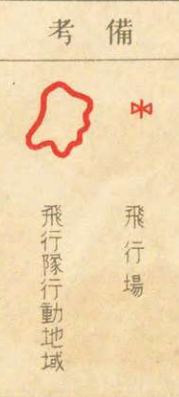 備考
飛行場
飛行隊行動地域